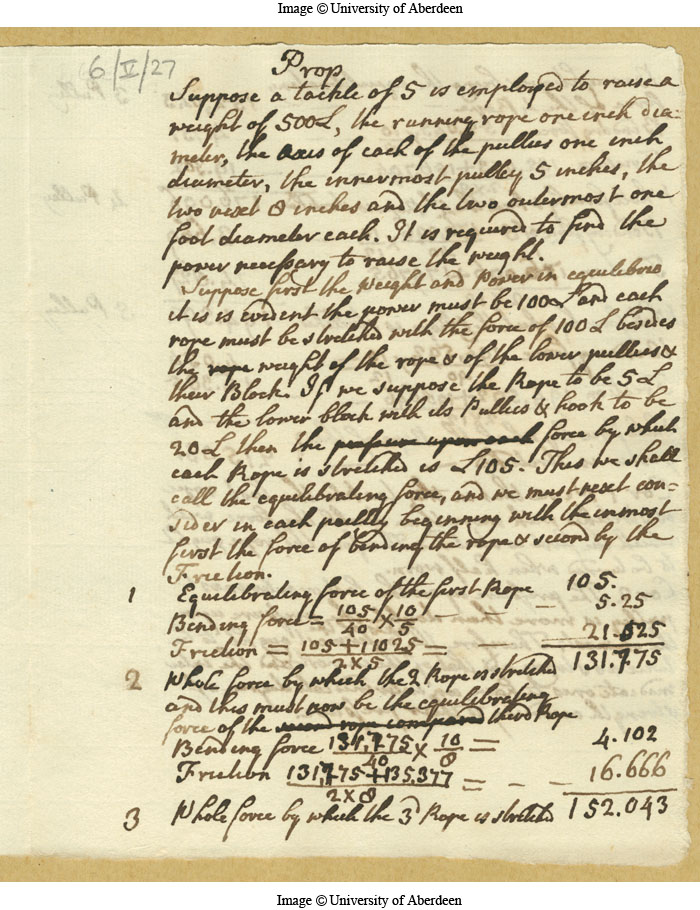 Image © University of Aberdeen
6/V/27
Prop
Suppose a tackle of 5 is employed to raise a
weight of 500L, the running rope one inch dia-
meter, the axis of each of the pullies one inch
diameter, the innermost pulley 5 inches, the
two next 8 inches and the two outermost one
foot diameter each. It is required to find the
power necessary to raise the weight.
Suppose first the Weight and Power in equilibrio
it is is evident the power must be 100L and each
rope must be stretched with the force of 100L besides
the rope weight of the rope & of the lower pullies &
their Block. If we suppose the Rope to be 5L
and the lower block with its Pullies & hook to be
20L then the pressure upon each force by which
each Rope is stretched is L105. This we shall
call the equilibrating force, and we must next con=
sider in each pulley beginning with the inmost
first the force of bending the rope & second by the
Friction.
1 Equilibrating force of the first Rope 105.
Bending force = 105/40 × 10/5 – – – 5.25
Friction = 105 + 110 25/2 × 5 = – – 21.525
2 Whole force by which the 2 Rope is stretched 131.775
and this must now be the equilibrating
force of the second rope compared third Rope
Bending force 131,775/40 × 10/8 = 4.102
Friction 131,775 + 135.377/2 × 8 = – – 16.666
3 Whole force by which the 3d Rope is stretched 152.043
Image © University of Aberdeen